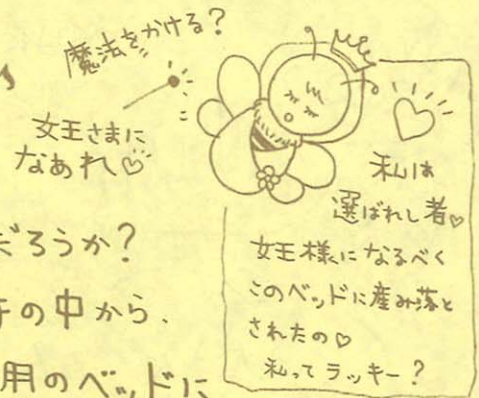 魔法をかける?
女王さまに
なあれ♡
私は
選ばれし者♡
女王様になるべく
このベッドに産み落と
されたの♡
私ってラッキー?
だろうか?
の中から、
用のベッドに